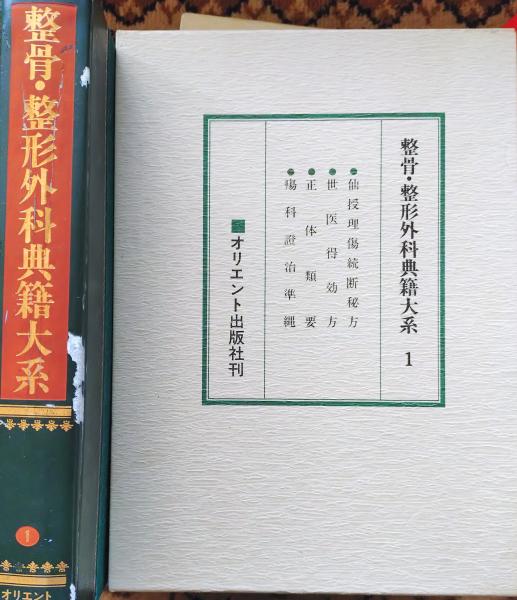 整骨・整形外科典籍大系
1
オリエント
整骨・整形外科典籍大系 1
仙授理傷続断秘方
世医得効方
正体類要
瘍科證治準縄
オリエント出版社刊